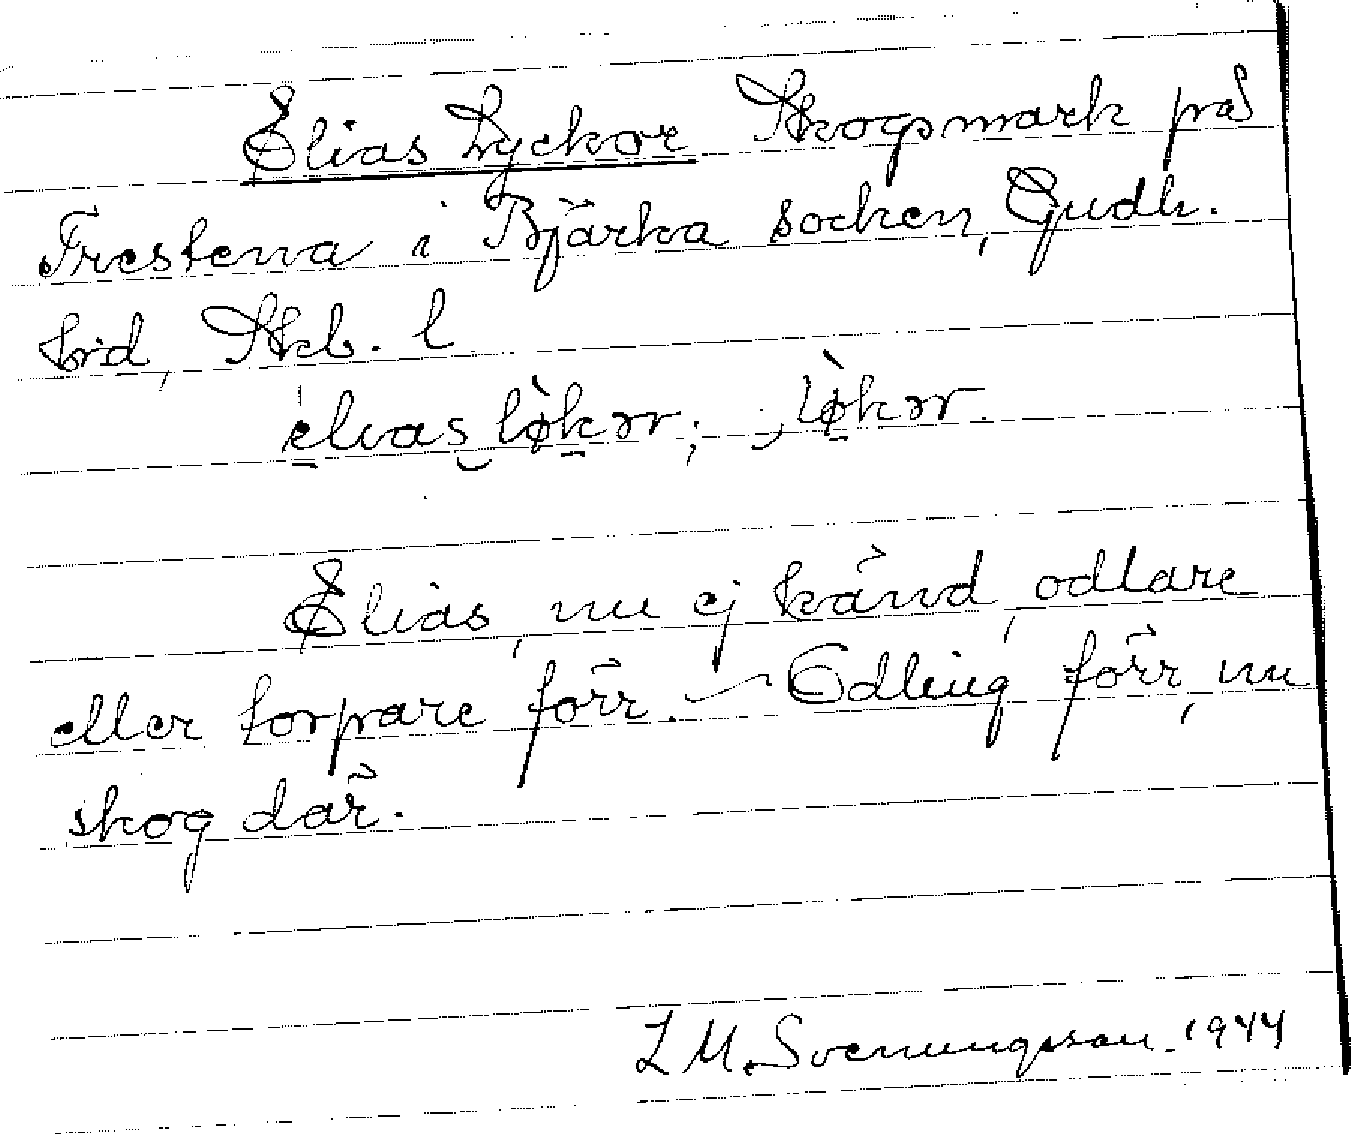 Elias Lyckor Skogsmark på
Frestena i Bjärka socken, Gudh.
hd, Skb. l
elias løkər; , løkər.
Elias, nu ej känd, odlare
eller torpare förr. – Odling förr, nu
skog där.
L M. Svenungsson. 1944